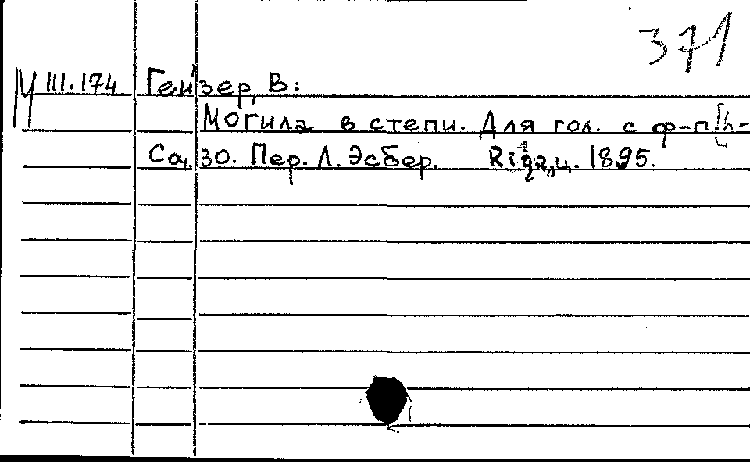 371
М III.174 Гейзер, В:
Могила в степи. Для гол. с ф-п. [h-
Соч. 30. Пер. Л. Эсбер. Riga, ц. 1895.